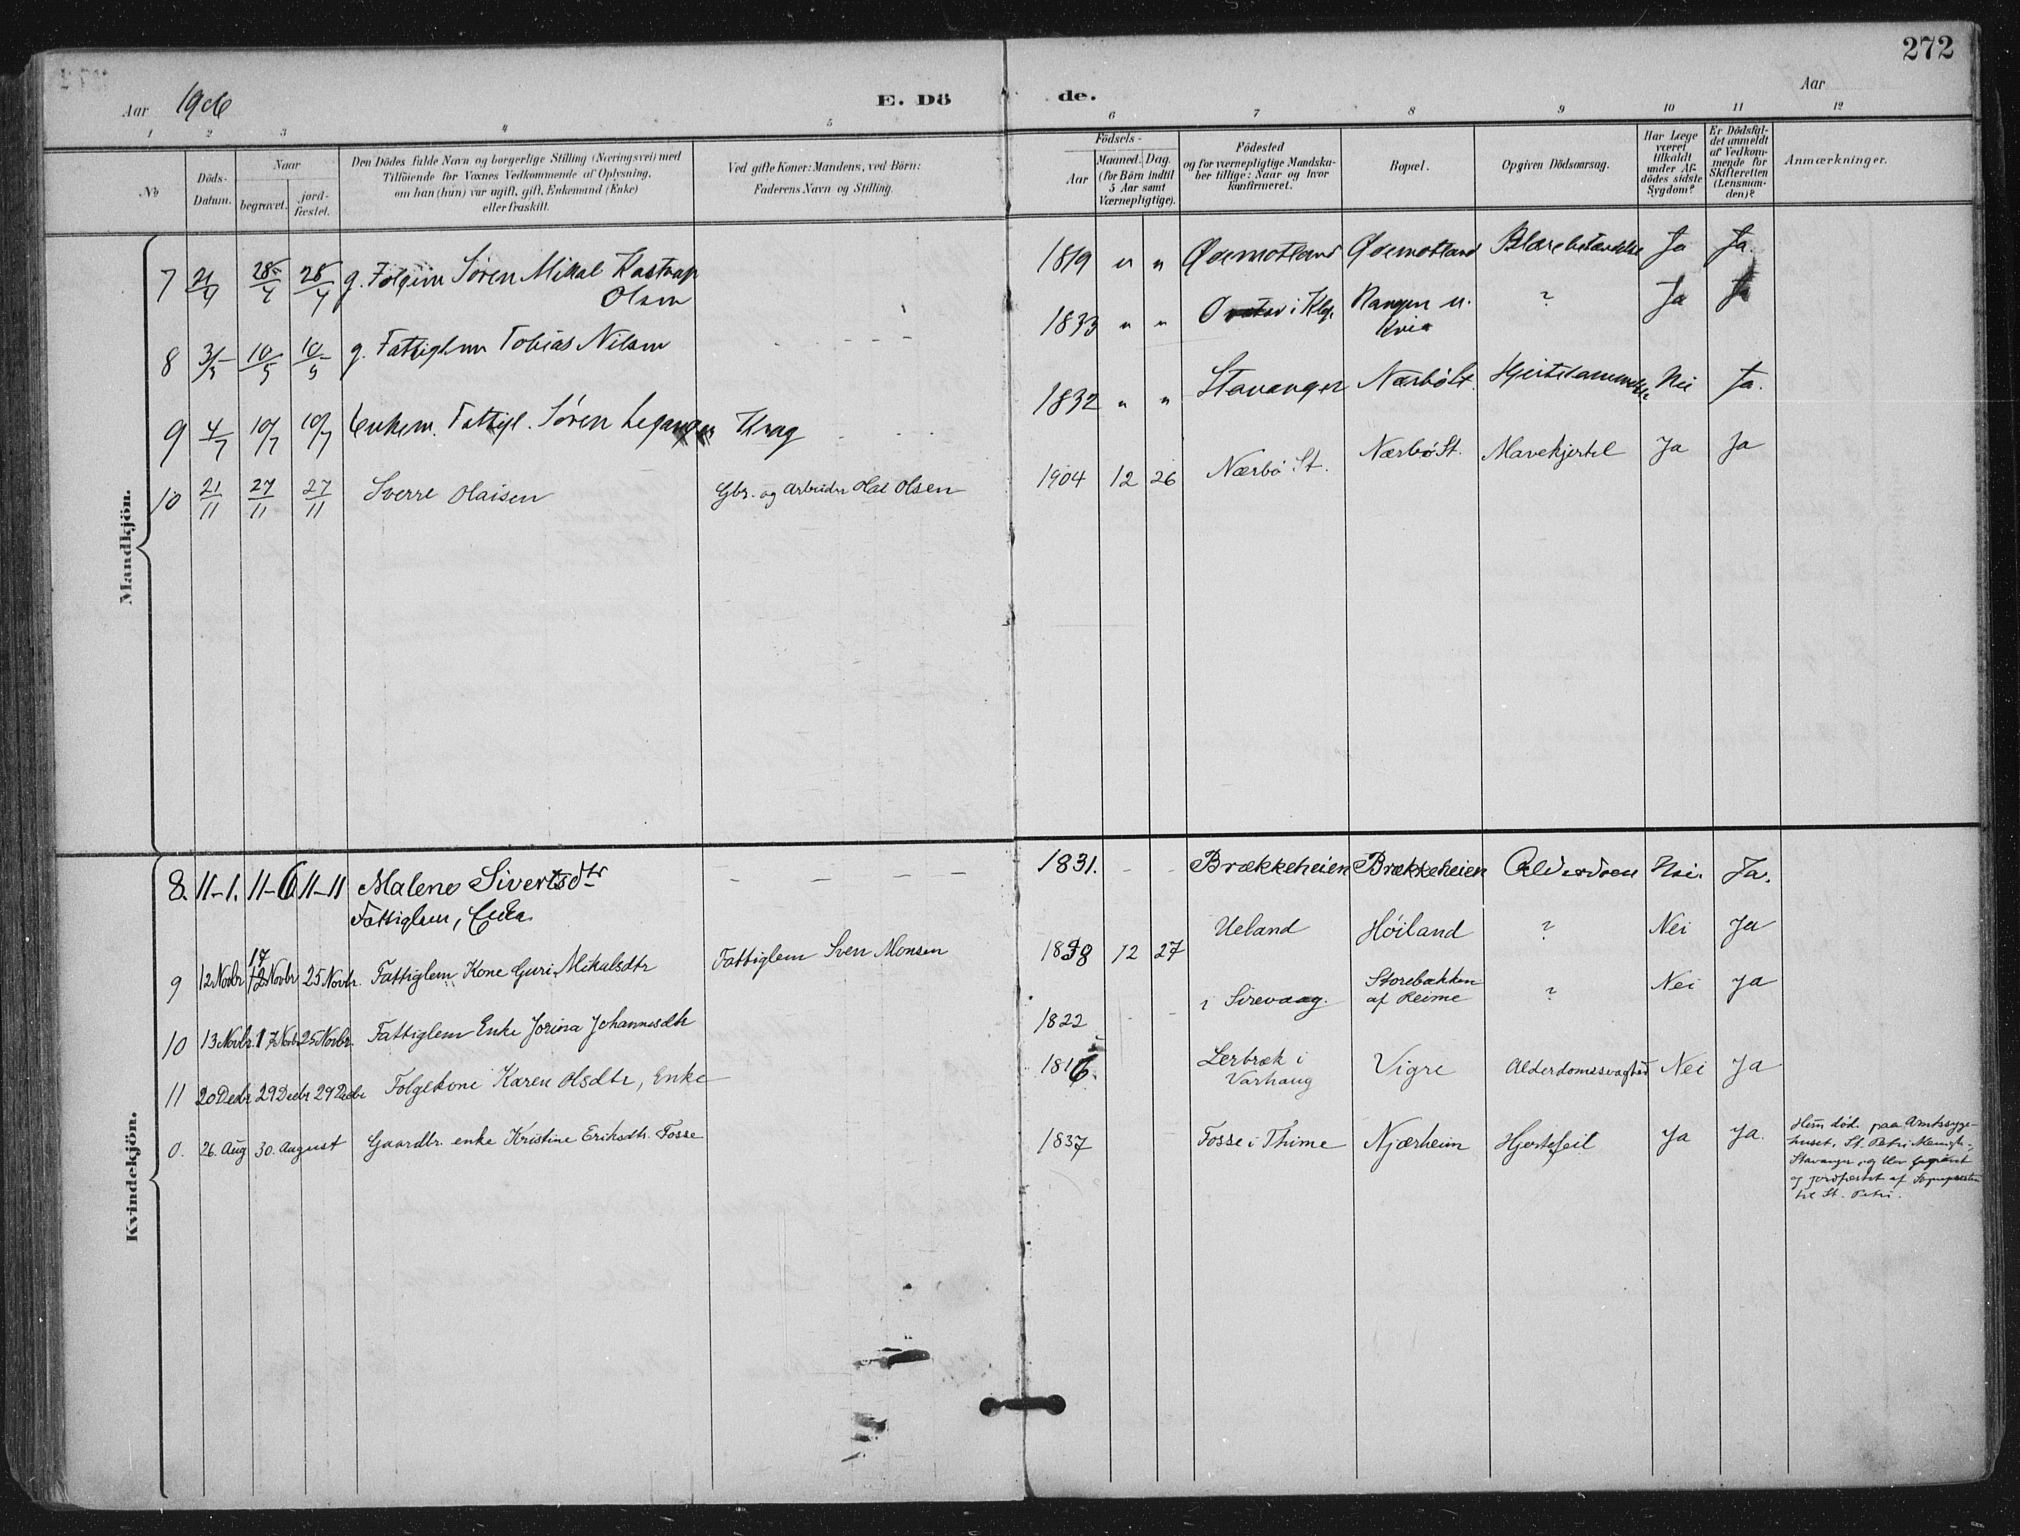 272
Aar 1906
E. Dö
de.
Aar
1 2 3 4 5 6 7 8 9 10 11 12
No
Döds-Datum.
Naar
begravet.
jord-fæstet.
Den Dödes fulde Navn og borgerlige Stilling (Næringsvei) med
Tilföiende for Voxnes Vedkommende af Oplysning,
om han (hun) var ugift, gift, Enkemand (Enke)
eller fraskilt.
Ved gifte Koner: Mandens, ved Börn:
Faderens Navn og Stilling.
Födsels-
Aar
Maaned. Dag.
(for Börn indtil
5 Aar samt
Værnepligtige).
Födested
og for værnepligtige Mandska-
ber tillige: Naar og hvor
konfirmeret.
Bopæl.
Opgiven Dödsaarsag.
Har Læge
været
tilkaldt
under Af-
dödes sidste
Sygdom?
Er Dödsfal-
det anmeldt
af Vedkom-
mende for
Skifteretten
(Lensman-
den)?
Anmærkninger.
Mandkjön.
7 21/4 28/4 28/4 g. Følgem Søren Mikal Kastrup
Olsen
1819 " " Ødemotland Ødemotland Blærebetændelse Ja Ja.
8 3/5 10/5 10/5 g. Fattiglem Tobias Nilsen
1833 " " i Klp. Hangen u.
Kvia
? Ja Ja
9 4/7 10/7 10/7 Enkem. Fattigl. Søren Krag
1832 " " Stavanger Nærbö St. Nei Ja.
10 21/11 27/11 27/11 Sverre Olaisen Gbr. og Arbeider Olai Olsen
1904 12 26 Nærbö St. Nærbö St. Mavekjertel Ja Ja
Kvindekjön.
8. 11-1. 11-6 11-11 Malene Sivertsdtr
Fattiglem, Enke
1831. Brækkeheien Brækkeheien Alderdom Nei. Ja.
9 12 Novbr 17 Novbr 25 Novbr. Fattiglem Kone Guri Mikalsdtr Fattiglem Sven Monsen
1838 12 27 Ueland Høiland ? Nei Ja
10 13 Novbr. 17 Novbr 25 Novbr. Fattiglem Enke Jorina Johannesdtr
1822 i Sirevaag. Storebakken
af Reime
? Nei Ja
11 20 Decbr 29 Decbr 29 Decbr Folgekone Karen Olsdtr, Enke
1816. Lerbræk i
Varhaug
Vigre Alderdomssvaghed Nei Ja
0. 26. Aug 30. August Gaardbr. enke Kristine Eriksdtr. Fosse
1837 Fosse i Thime Njærheim Hjertefeil Ja Ja.
Hun døde paa Amtssyge-
huset, St. Petri Menigh.,
Stavanger, og blev begravet
og jordfæstet af Sognepresten
til St. Petri.